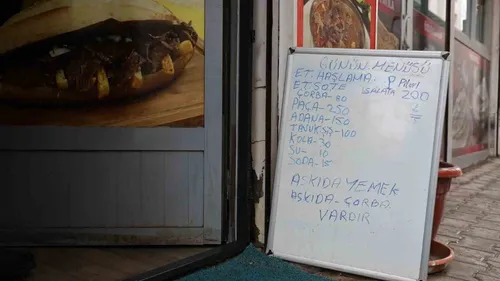 GÜNÜN MENÜSÜ
ET. HAŞLAMA. P Pilav
ET. SOTE SALATA 200
ÇORBA-80
PAÇA-250
ADANA-150
TAVUK ŞİŞ-100
KOLA-30
SU- 10
SODA-15
ASKIDA YEMEK
ASKIDA-ÇORBA
VARDIR